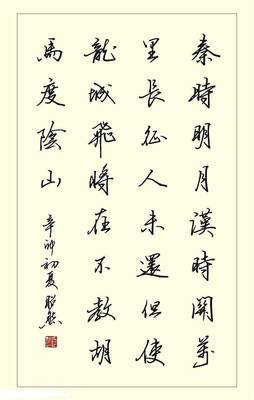 秦時明月漢時關萬
里長征人未還但使
龍城飛將在不教胡
馬度陰山
辛卯初夏